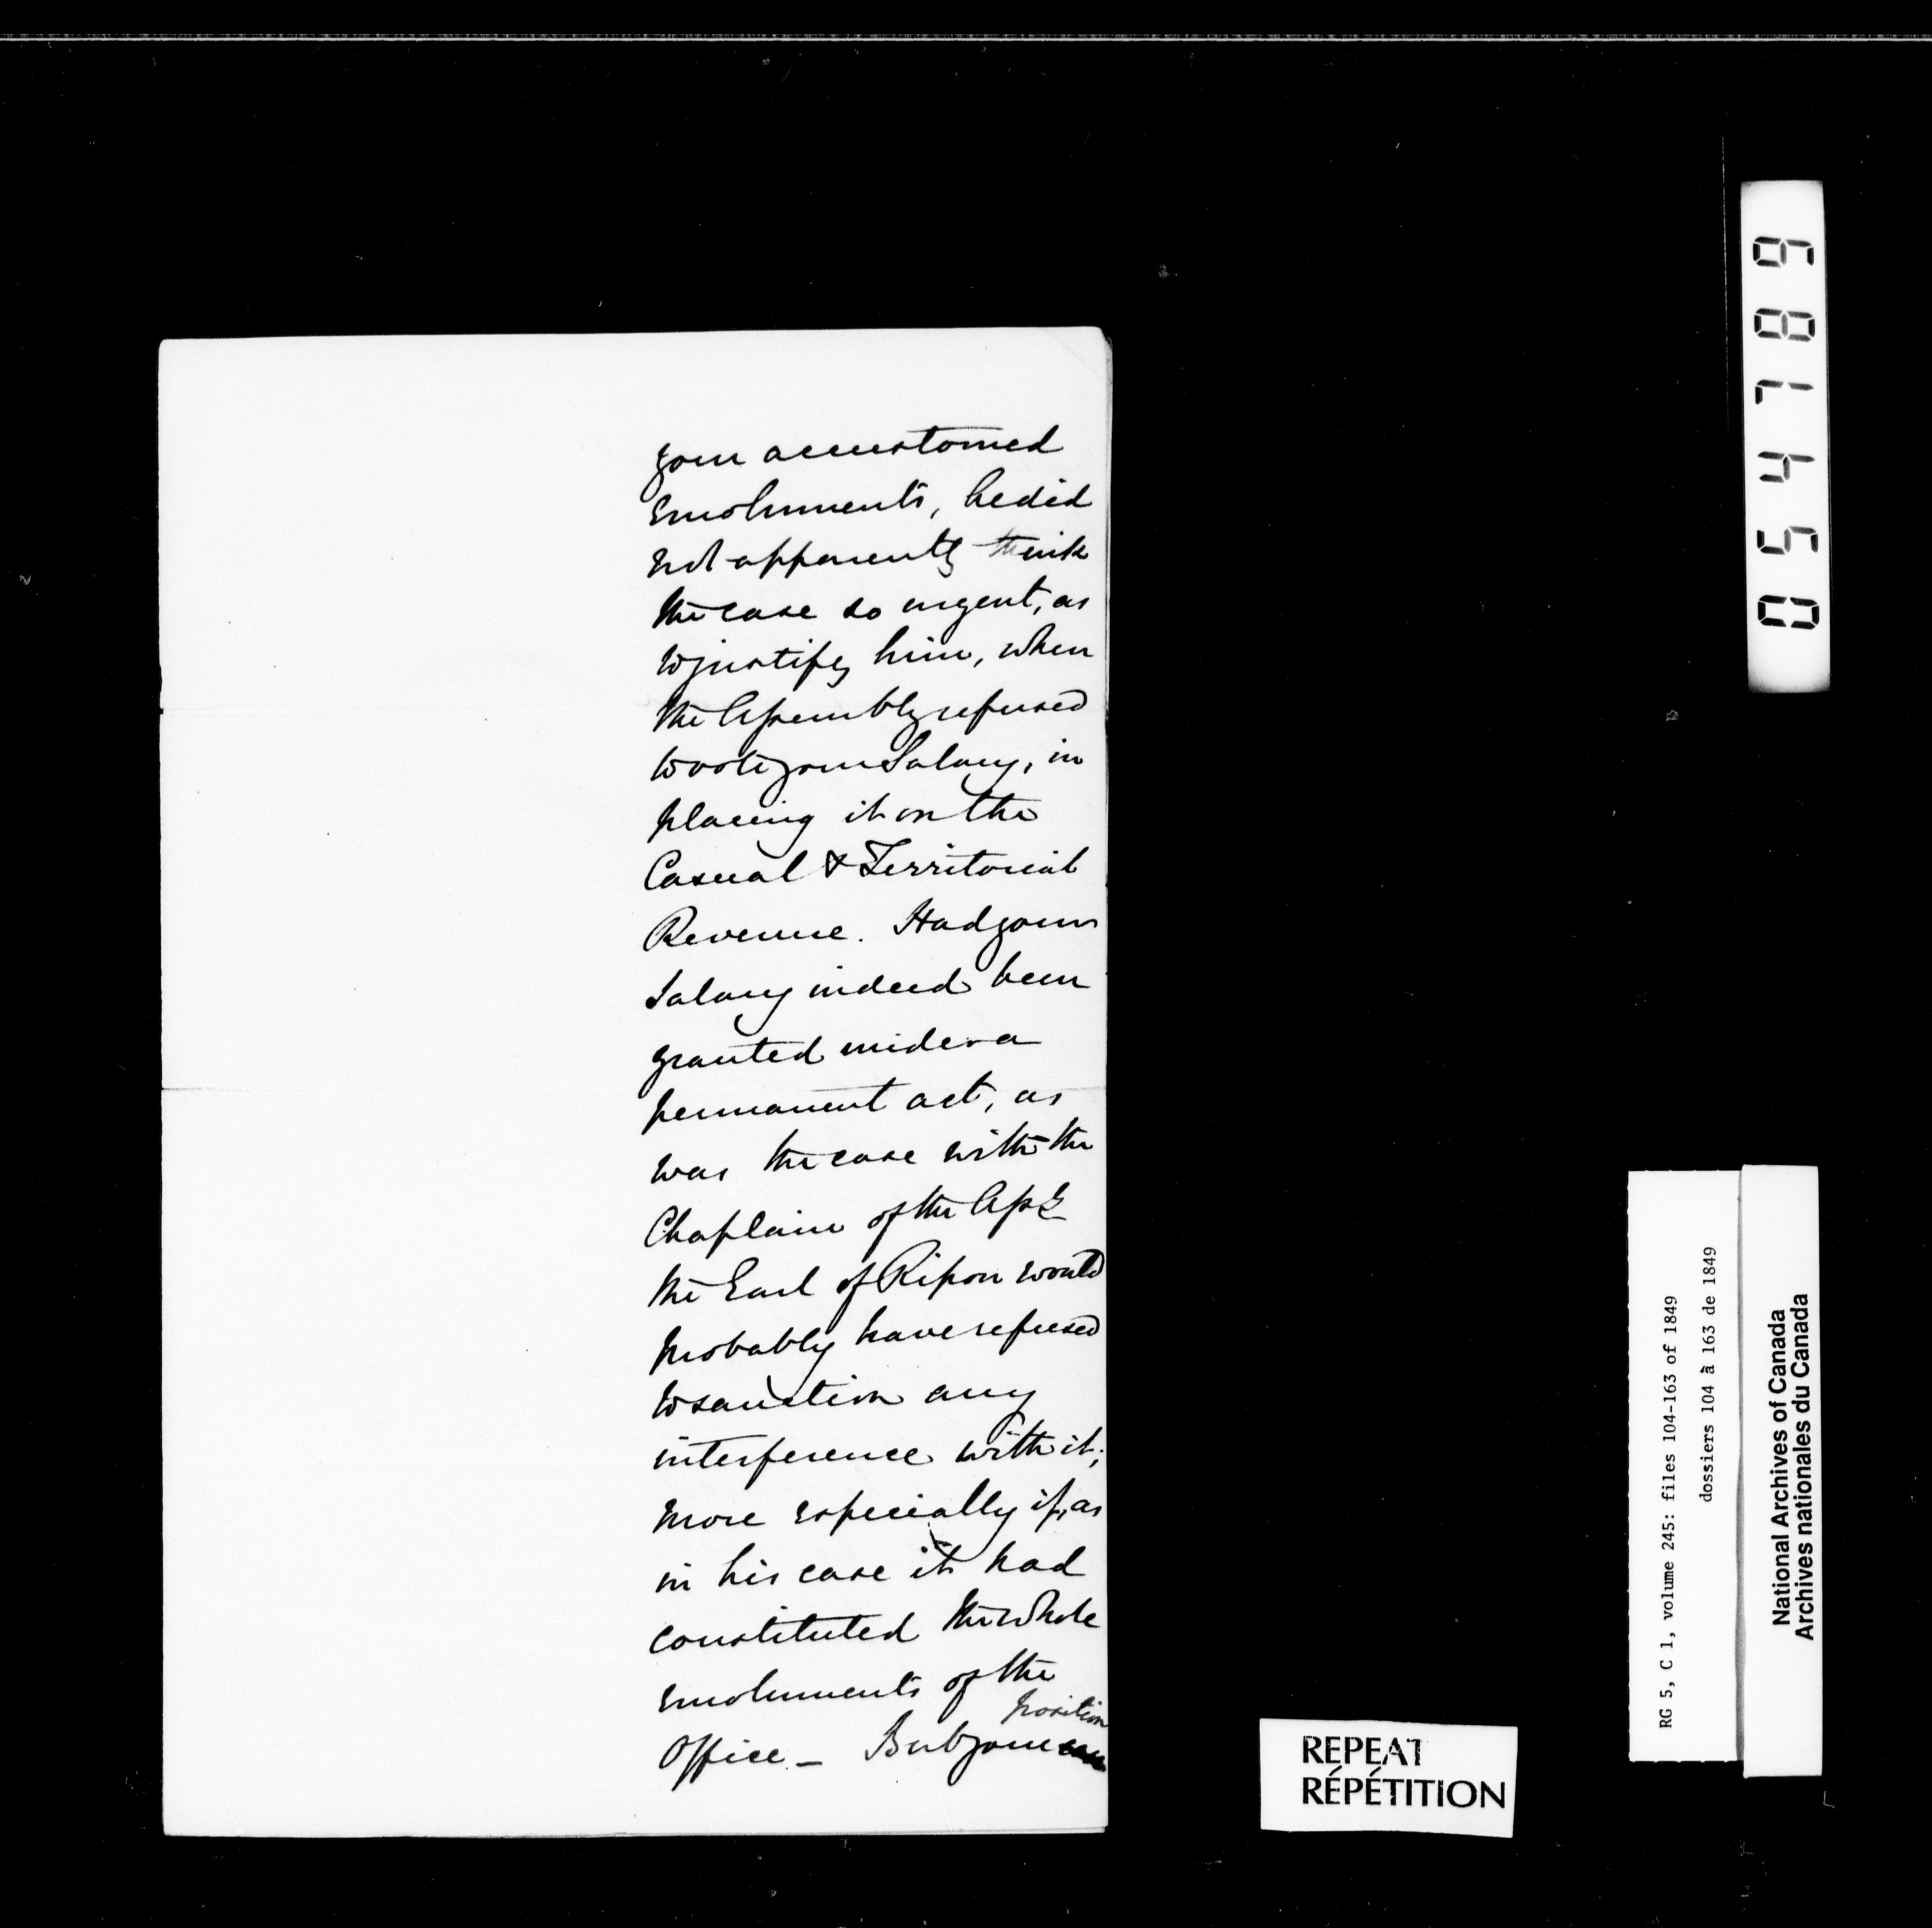 your accustomed
emoluments, he did
not apparently think
the case so urgent, as
to justify him, when
the Assembly refused
to vote your Salary, in
placing it on the
Casual & Territorial
Revenue. Had your
Salary indeed been
granted under a
permanent act, as
was the case with the
Chaplain of the Assy
the Earl of Ripon would
probably have refused
to sanction any
interference with it;
more especially if, as
in his case it had
constituted the whole
emoluments of the
position
Office _ But your
054789
RG 5, C 1, volume 245: files 104-163 of 1849
dossiers 104 à 163 de 1849
National Archives of Canada
Archives nationales du Canada
REPEAT
RÉPÉTITION